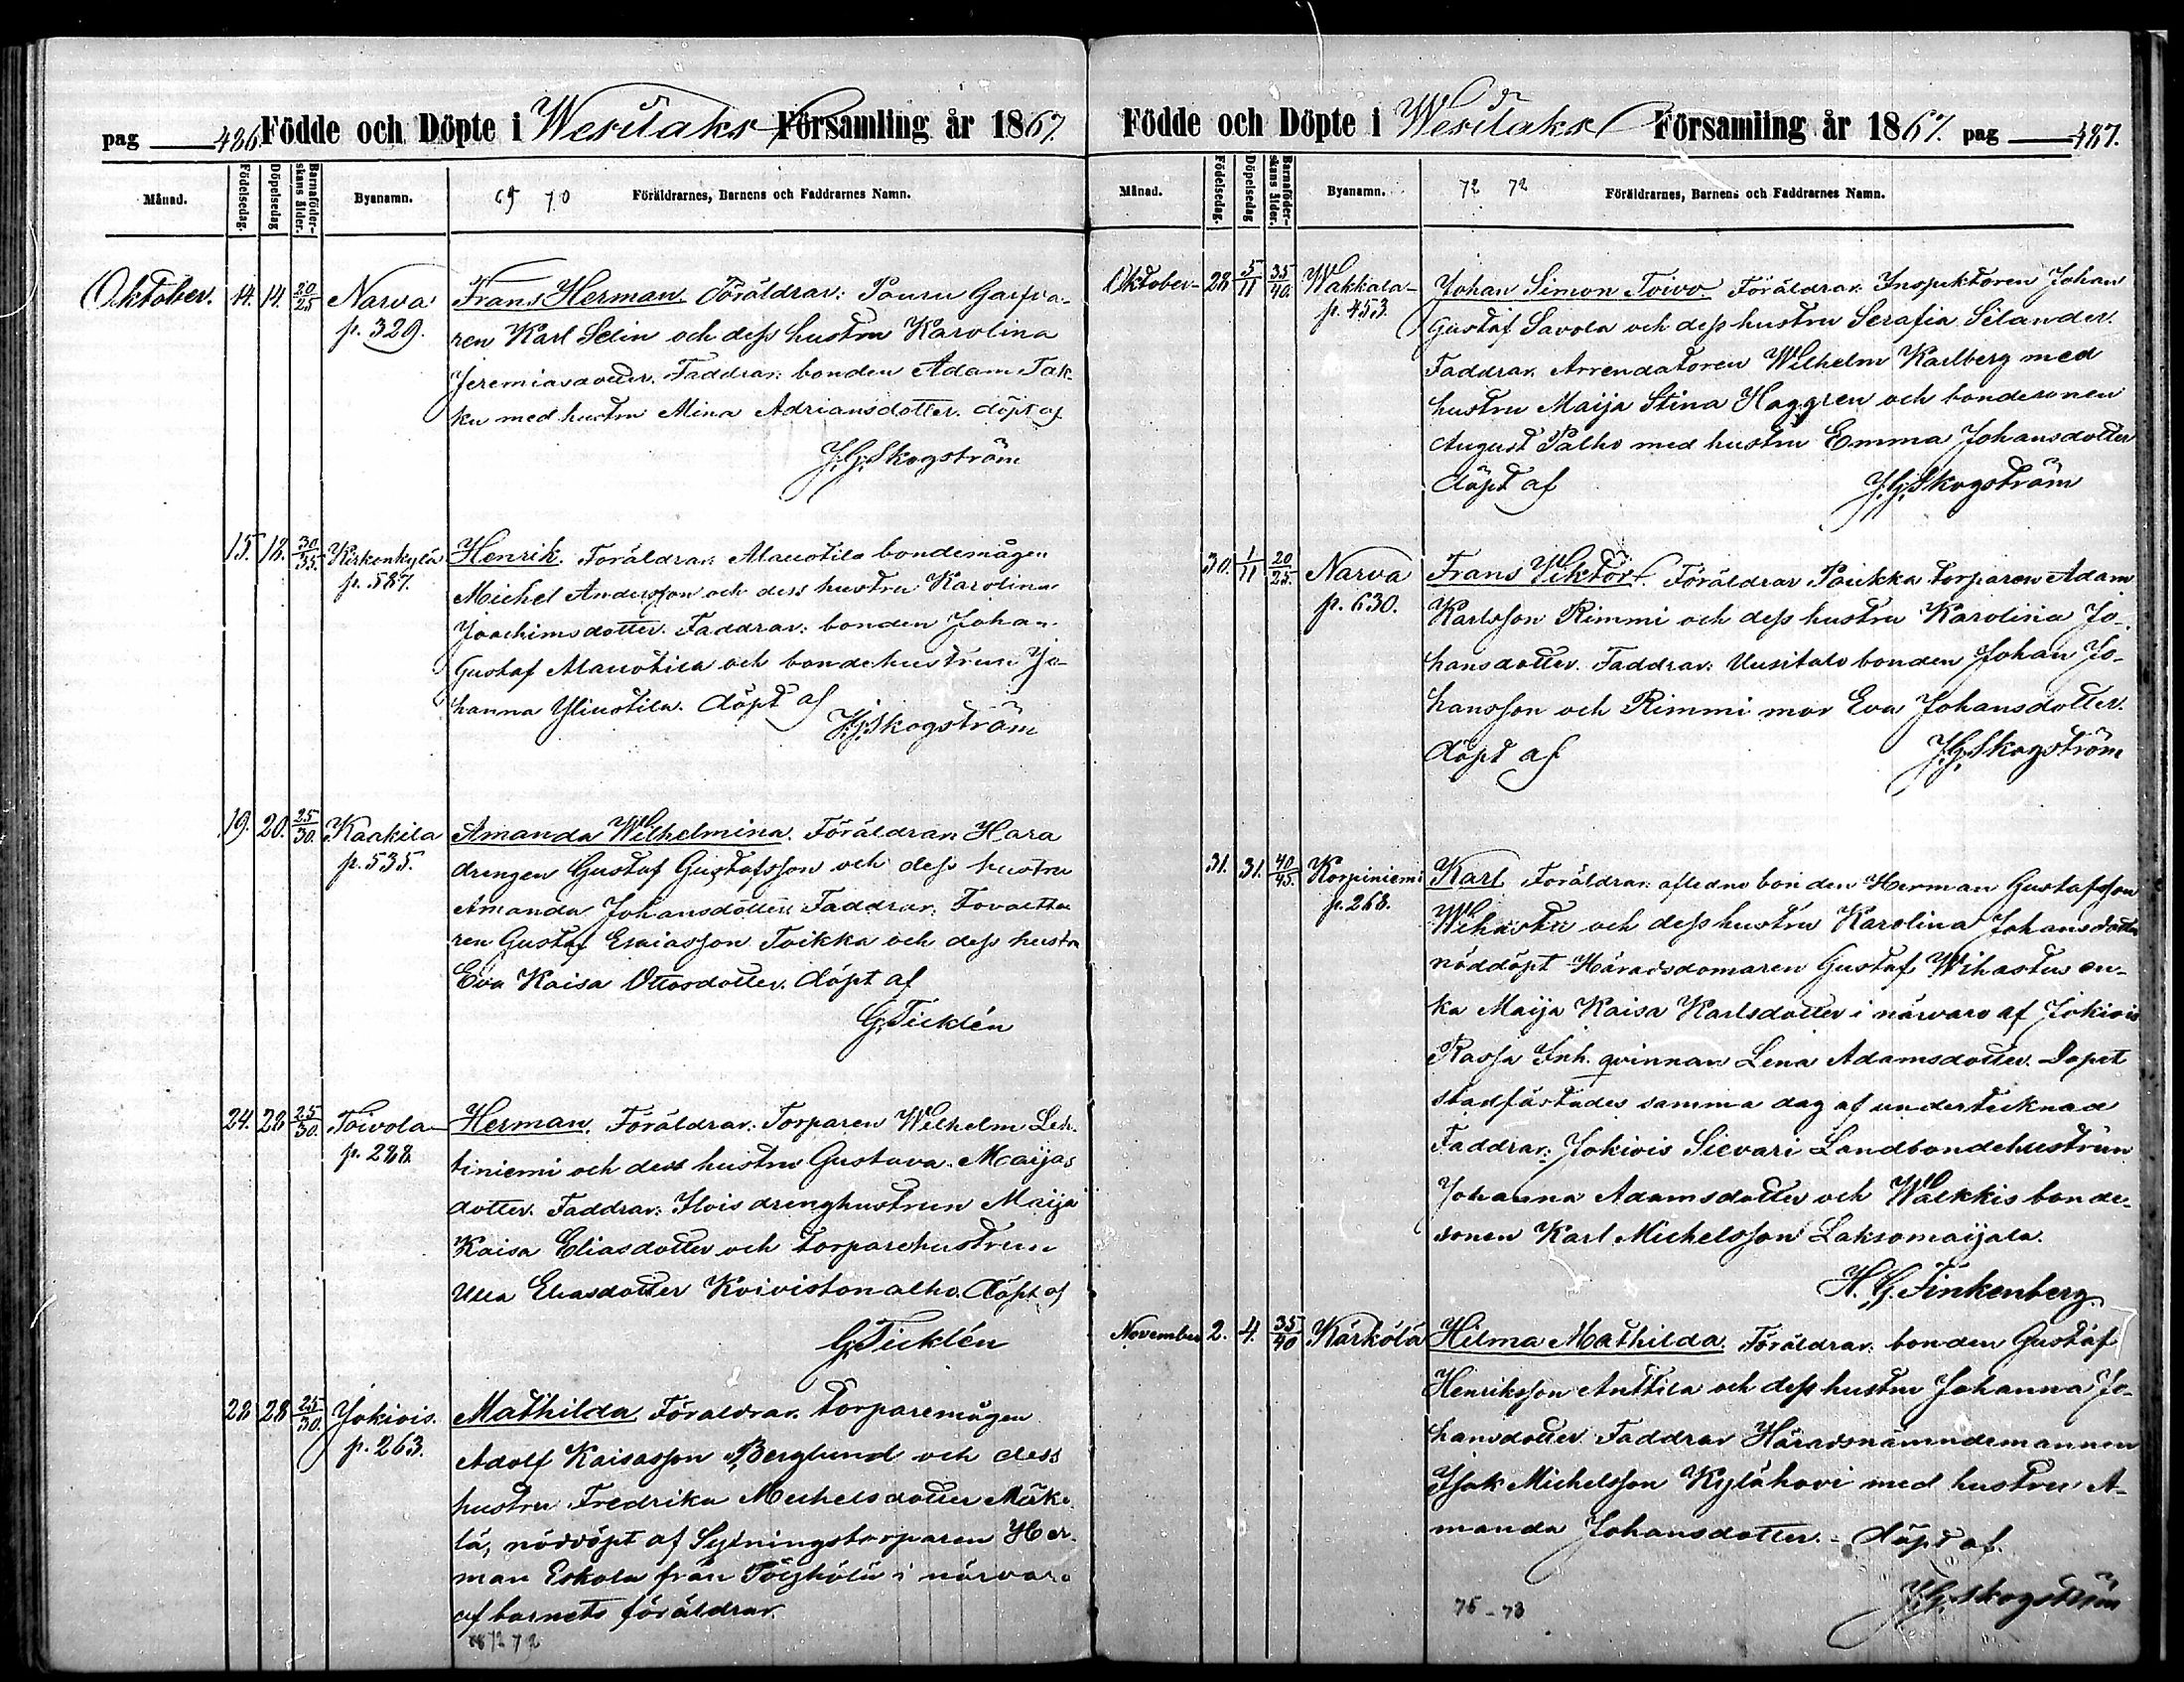 pag 486. Födde och Döpte i Wesilaks Församling år 1867.
Månad. Födelsedag. Döpelsedag Barnaföderskans ålder. Byanamn. 69 70 Föräldrarnes, Barnens och Faddrarnes Namn.
Oktober. 14. 14. 20/25 Narva Frans Herman. Föräldrar: Pouru Garfva-
p. 329. ren Karl Selin och dess hustru Karolina
Jeremiasdotter. Faddrar: bonden Adam Tak-
ku med hustru Mina Adriansdotter. döpt af
J.G. Skogström
15. 18. 30/35. Kirkonkylä Henrik. Föräldrar: Alauotila bondemågen
p. 587. Michel Andersson och dess hustru Karolina
Joachimsdotter. Faddrar: bonden Johan
Gustaf Alauotila och bondehustrun Jo-
hanna Yliuotila. döpt af
J.G. Skogström
19. 20. 25/30. Kaakila Amanda Wilhelmina. Föräldrar: Hara
p. 535. drengen Gustaf Gustafsson och dess hustru
Amanda Johansdotter. Faddrar:
ren Gustaf Esaiasson Toikka och dess hustru
Eva Kaisa Ottosdotter. döpt af
G. Ticklén
24. 28 25/30. Toivola Herman. Föräldrar: Torparen Wilhelm Leh-
p. 288. tiniemi och dess hustru Gustava Maijas
dotter. Faddrar: Ilois drenghustrun Maija
Kaisa Eliasdotter och torparehustrun
Ulla Eliasdotter Koivistonalho. döpt af
G. Ticklén
28 28 25/30. Jokiois. Mathilda. Föräldrar. Torparemågen
p. 263. Adolf Kaisasson Berglund och dess
hustru Fredrika Michelsdotter Mäke-
lä, nöddöpt af Sytningstorparen Her-
man Eskola från i närvaro
af barnets föräldrar.
72
Födde och Döpte i Wesilaks Församling år 1867. pag 487.
Månad. Födelsedag. Döpelsedag Barnaföderskans ålder. Byanamn. 72 72 Föräldrarnes, Barnens och Faddrarnes Namn.
Oktober 28 5/11 35/40. Wakkala Johan Simon Toivo. Föräldrar. Inspektoren Johan
p. 453. Gustaf Savola och dess hustru Serafia Silander.
Faddrar. Arrendatoren Wilhelm Karlberg med
hustru Maija Stina Haggren och bondesonen
August Palho med hustru Emma Johansdotter
döpt af J.G. Skogström
30. 1/11 20/25. Narva Frans Viktor. Föräldrar Paukka torparen Adam
p. 630. Karlsson Rimmi och dess hustru Karolina Jo-
hansdotter. Faddrar: Uusitalo bonden Johan Jo-
hansson och Rimmi mor Eva Johansdotter.
döpt af J.G. Skogström
31. 31. 40/45. Korpiniemi Karl Föräldrar: afledne bonden Herman Gustafsson
p. 268. Wihastu och dess hustru Karolina Johansdotter
nöddöpt Häradsdomaren Gustaf Wihastus en-
ka Maija Kaisa Karlsdotter i närvaro af Jokiois
Rassa Inh. qvinnan Lena Adamsdotter. Dopet
stadfästades samma dag af undertecknad
Faddrar: Jokiois Sievari Landbondehustrun
Johanna Adamsdotter och Walkkis bonde-
sonen Karl Michelsson Laksomaijala.
H. G. Finkenberg.
November 2. 4. 35/40 Kärkölä Hilma Mathilda. Föräldrar. bonden Gustaf
Henriksson Anttila och dess hustru Johanna Jo-
hansdotter. Faddrar Häradsnämndemannen
Isak Michelsson Kylähovi med hustru A-
manda Johansdotter. döpt af.
J.G. Skogström
75 - 73